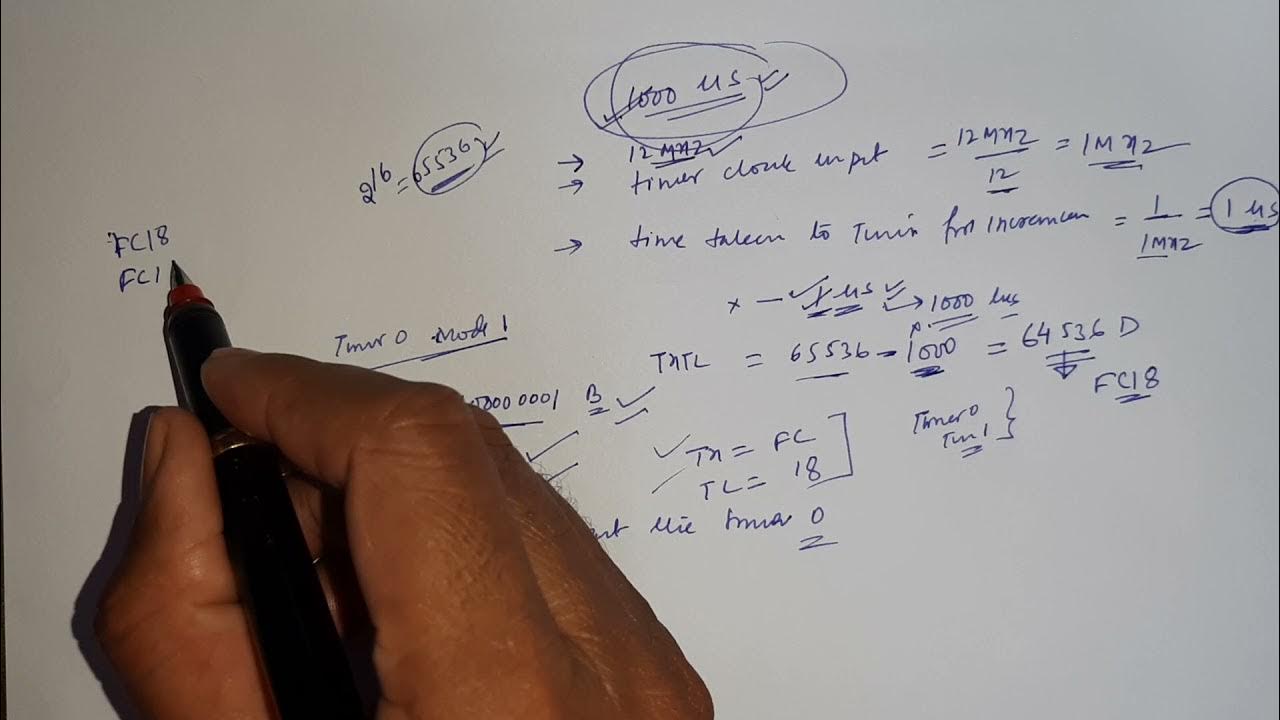 1000 us
2^16 = 65536
→ 12MHz
→ timer clock input = 12MHz / 12 = 1MHz
→ time taken to Timer for incremen = 1 / 1MHz = 1 us
FC18
FC1
x — 1 us → 1000 us
Timer 0 Mode 1
THTL = 65536 - 1000 = 64536 D
FC18
00000001 B
TH = FC
TL = 18
Timer 0
Tim 1
the timer 0